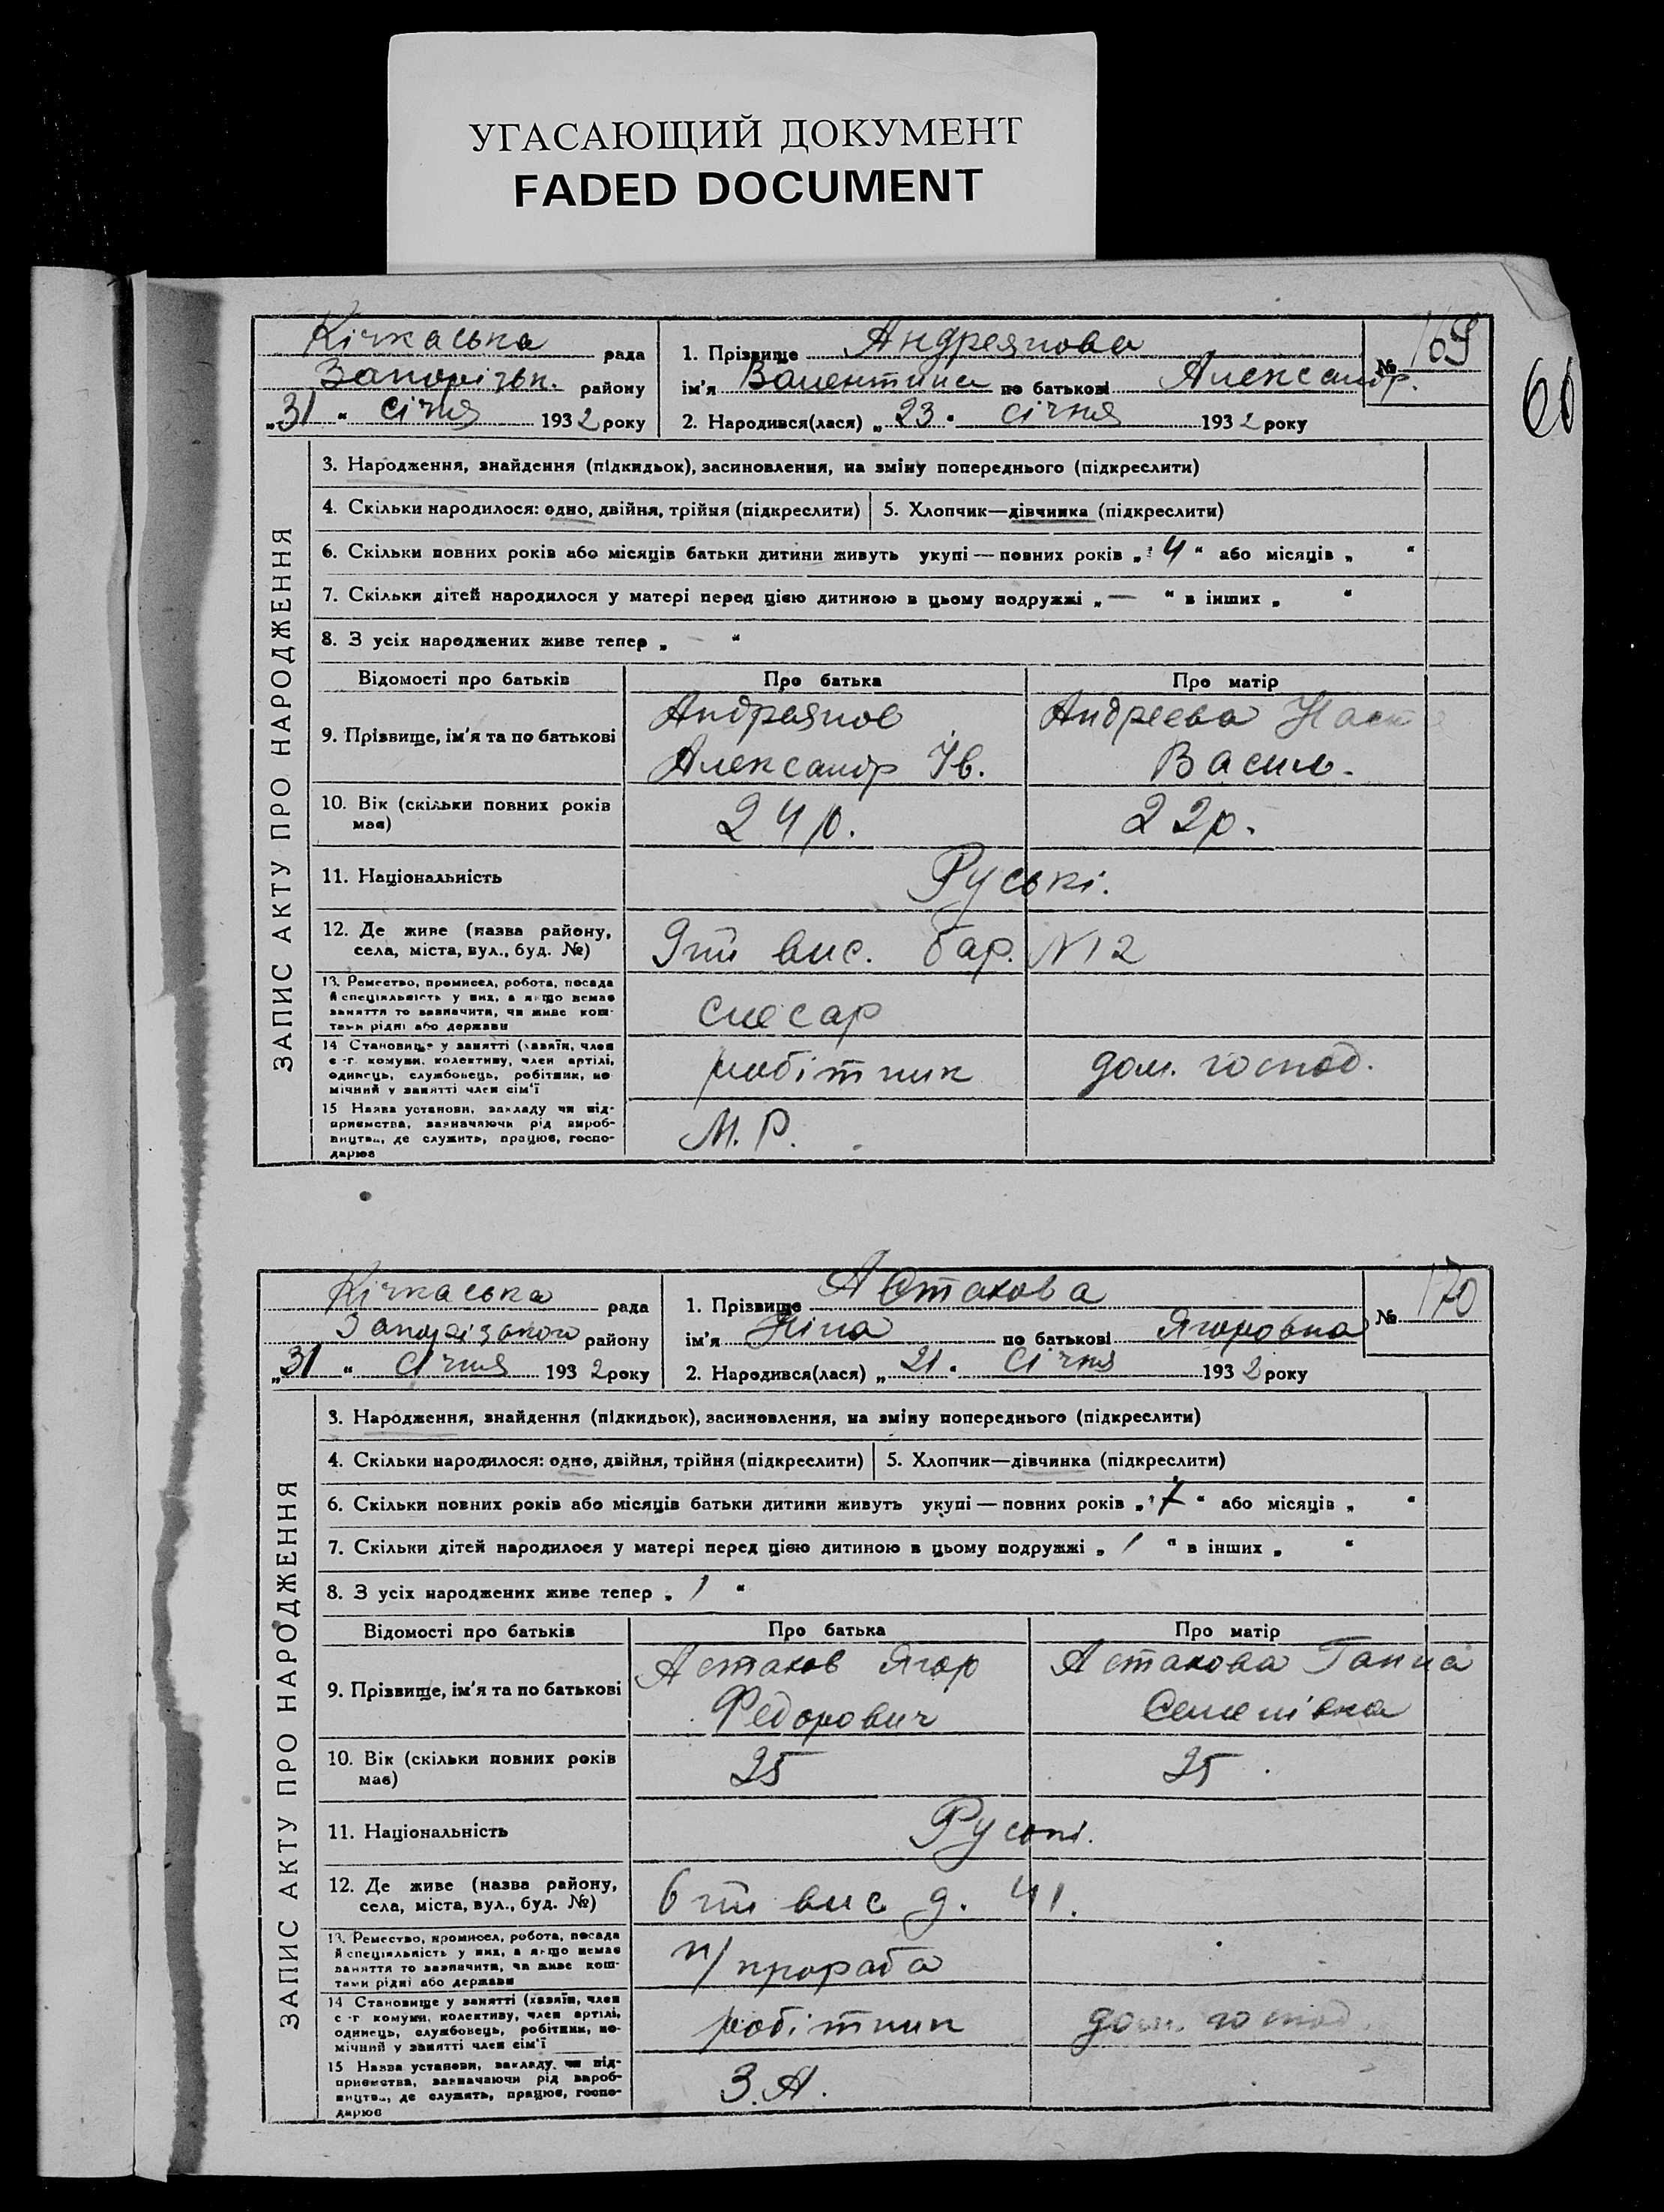 УГАСАЮЩИЙ ДОКУМЕНТ
FADED DOCUMENT
Кічкаська рада
Запорізьк. району
„31“ січня 1932 року
1. Прізвище Андреянова
ім'я Валентина по батькові Александр.
2. Народився(лася) „23“ січня 1932 року
№ 169
60
ЗАПИС АКТУ ПРО НАРОДЖЕННЯ
3. Народження, знайдення (підкидьок), засиновлення, на зміну попереднього (підкреслити)
4. Скільки народилося: одно, двійня, трійня (підкреслити) 5. Хлопчик—дівчинка (підкреслити)
6. Скільки повних років або місяців батьки дитини живуть укупі — повних років „4“ або місяців „ “
7. Скільки дітей народилося у матері перед цією дитиною в цьому подружжі „—“ в інших „ “
8. З усіх народжених живе тепер „ “
Відомості про батьків Про батька Про матір
9. Прізвище, ім'я та по батькові
Андреянов
Александр Ів.
Андреева Наст
Васил.
10. Вік (скільки повних років
має)
24 р.
22 р.
11. Національність
Руські.
12. Де живе (назва району,
села, міста, вул., буд. №)
9ти вис. бар. №12
13. Ремество, промисел, робота, посада
й спеціяльність у них, а якщо немає
заняття то зазначити, чи живе кош-
тами рідні або держави
слесар
14 Становище у занятті (хазяїн, член
с.-г. комуни, колективу, член артілі,
одинець, службовець, робітник, по-
мічний у занятті член сім'ї
робітник
дом. господ.
15 Назва установи, закладу чи під-
приємства, зазначаючи рід вироб-
ництва, де служить, працює, госпо-
дарює
М. Р.
Кічкаська рада
Запорізького району
„31“ січня 1932 року
1. Прізвище Астахова
ім'я Ніна по батькові Ягоровна
2. Народився(лася) „21“ Січня 1932 року
№ 170
ЗАПИС АКТУ ПРО НАРОДЖЕННЯ
3. Народження, знайдення (підкидьок), засиновлення, на зміну попереднього (підкреслити)
4. Скільки народилося: одно, двійня, трійня (підкреслити) 5. Хлопчик—дівчинка (підкреслити)
6. Скільки повних років або місяців батьки дитини живуть укупі — повних років „7“ або місяців „ “
7. Скільки дітей народилося у матері перед цією дитиною в цьому подружжі „1“ в інших „ “
8. З усіх народжених живе тепер „1“
Відомості про батьків Про батька Про матір
9. Прізвище, ім'я та по батькові
Астахов Ягор
Федорович
Астахова Ганна
Семенівна
10. Вік (скільки повних років
має)
25
25
11. Національність
Руські.
12. Де живе (назва району,
села, міста, вул., буд. №)
6ти вис д. 41.
13. Ремество, промисел, робота, посада
й спеціяльність у них, а якщо немає
заняття то зазначити, чи живе кош-
тами рідні або держави
п/прораба
14 Становище у занятті (хазяїн, член
с.-г. комуни, колективу, член артілі,
одинець, службовець, робітник, по-
мічний у занятті член сім'ї
робітник
дом. господ.
15 Назва установи, закладу чи під-
приємства, зазначаючи рід вироб-
ництва, де служить, працює, госпо-
дарює
З. А.